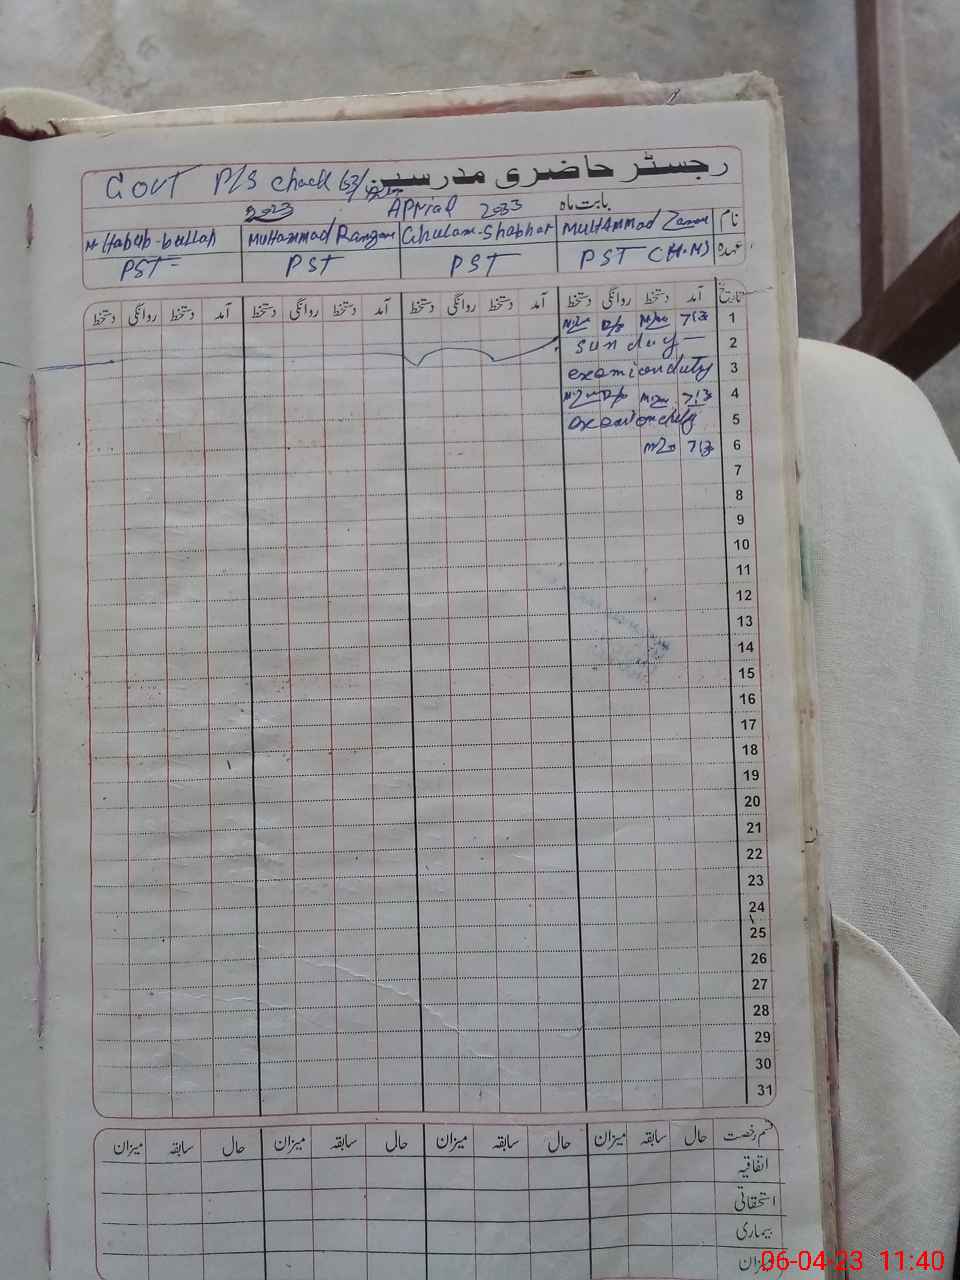 رجسٹر حاضری مدرسین
Govt P/S chack
بابت ماہ Apprial 2023
نام MuHAmmad Zaman Ghulam-Shabhar MuHammad Ramzan M Habib-bullah
عہدہ PST (H.M) PST PST PST
تاریخ آمد دستخط روانگی دستخط آمد دستخط روانگی دستخط آمد دستخط روانگی دستخط آمد دستخط روانگی دستخط
1
2 sunday
3 examionduty
4
5
6
7
8
9
10
11
12
13
14
15
16
17
18
19
20
21
22
23
24
25
26
27
28
29
30
31
قسم رخصت حال سابقہ میزان حال سابقہ میزان حال سابقہ میزان حال سابقہ میزان
اتفاقیہ
استحقاقی
بیماری
میزان
06-04-23 11:40